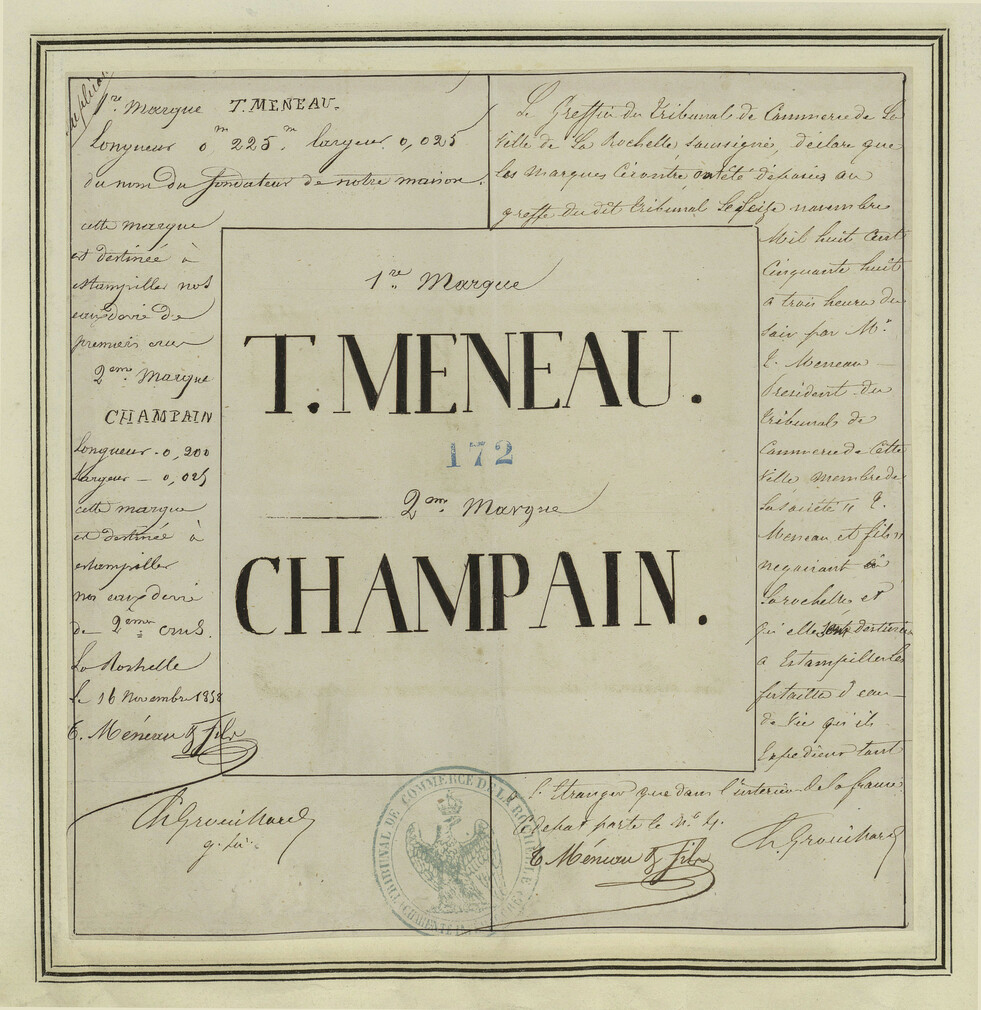 1re Marque T. MENEAU.
Longueur 0m 225. largeur. 0,m 025
du nom du fondateur de notre maison.
cette marque
est destinée à
estampiller nos
eaux devie de
premiers crus
2eme Marque
CHAMPAIN
Longueur - 0, 200
Largeur - 0, 025
cette marque
est destinée à
estampiller
nos eaux devie
de 2emes crus.
La Rochelle
Le 16 Novembre 1858
T. Méneau & fils
Ch Grouillard
Le Greffier du Tribunal de Commerce de La
Ville de La Rochelle soussigné, déclare que
les Marques Cicontre ont été déposées au
greffe du dit tribunal Le Seize novembre
Mil huit Cent
Cinquante huit
a trois heures du
soir par Mr
T. Meneau
President du
tribunal de
Commerce de Cette
Ville membre de
La société T.
Meneau et fils
negociant à
Larochelle et
qu'elles sont destinées
a Estampiller les
futailles d'eau-
de Vie qu'ils
Expedient tant
a l'Etranger que dans l'interieur de la france.
Ce depot porte le No. 4.
T. Méneau & fils
Ch. Grouillard
1re Marque
T. MENEAU.
172
2me Marque
CHAMPAIN.
TRIBUNAL DE COMMERCE DE LA ROCHELLE